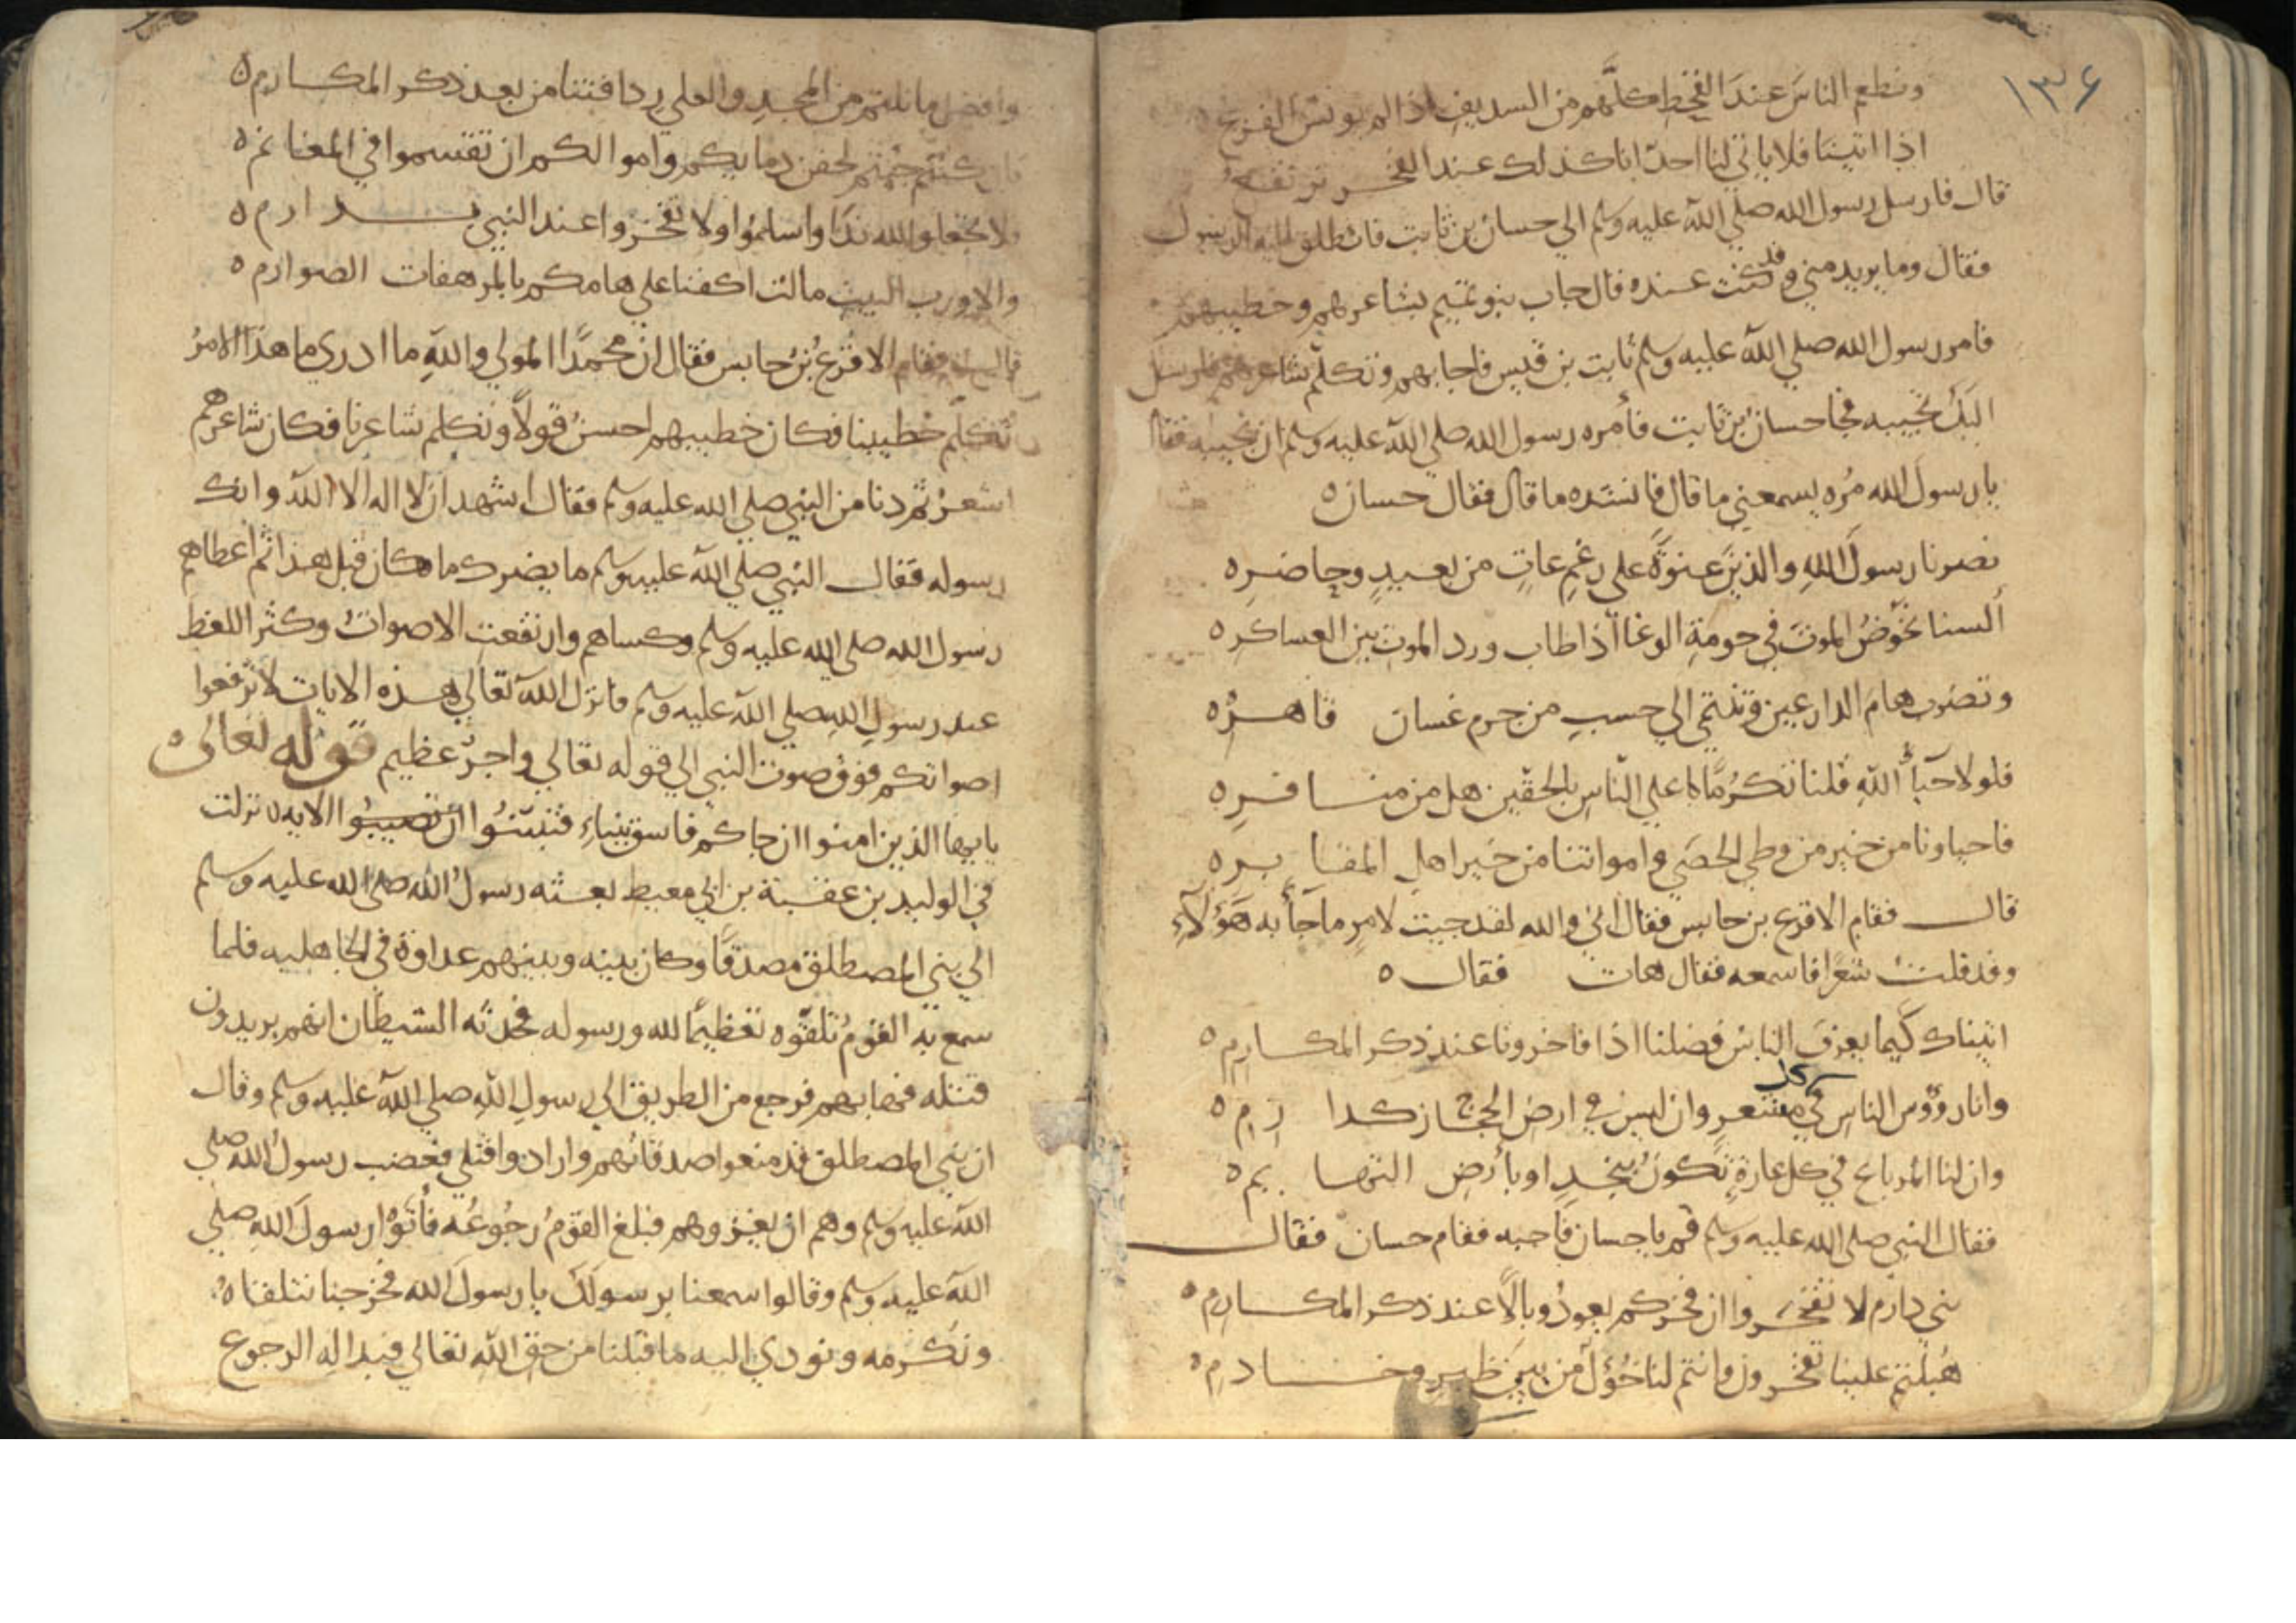 ١٣٤
ونطعم الناسَ عندَ القحطِ كلَّهم من السديف اذا لم يونس القزع
اذا ابينا فلا يابى لنا احدٌ انا كذلك عند الفخر نرتفعُ
قال فارسل رسول الله صلي الله عليه وسلم الي حسان بن ثابت فانطلق اليه الرسول
فقال وما يريد مني وقد كنت عنده قال جاب بنو تميم بشاعرهم وخطيبهم
فامر رسول الله صلي الله عليه وسلم ثابت بن قيس فاجابهم وتكلّم شاعرهم فارسل
اليكَ تجيبه فجا حسان بن ثابت فأمره رسول الله صلي الله عليه وسلم ان يجيبه فقال
يا رسول الله مُره يسمعني ما قال فانشده ما قال فقال حسان ه
نصرنا رسولَ اللهِ والدينَ عنوَةً على رغمِ عاتٍ من بعيدٍ وحاضرِ ه
ألسنا نخوضُ الموتَ في حومةِ الوغا اذا طاب ورد الموتِ بين العساكرِ ه
ونضرب هامَ الدارعين وننتمي الي حسبٍ من جرم غسان قاهرْ ه
فلولا حيآءُ اللهِ قلنا تكرُمًا علي الناسِ بالحقّين هل من منافرِ ه
فاحياونا من خير من وطي الحصَي وامواتنا من خير اهلِ المقابر ه
قال فقام الاقرع بن حابس فقال اني والله لقد جيت لامرٍ ما جآ به هَؤلآءِ
وقد قلت شعرًا فاسمعه فقال هات فقال ه
اتيناك كَيما يعرفَ الناسُ فضلنا اذا فاخرونا عند ذكر المكارِم ه
وانا رؤوس الناس في كل معشرٍ وان ليس في ارضِ الحجاز كدارِمِ ه
وان لنا المرباع في كل غارةٍ تكونُ بنجدٍ او بأرضِ التهايم ه
فقال النبي صلي الله عليه وسلم قم يا حسان فاجبه فقام حسان فقال
بني دارم لا تفخروا ان فخركم يعودُ وبالًا عند ذكر المكارم ه
هُبلتم علينا تفخرون وانتم لنا خُوَلٌ من بين ظيرٍ وخادمِ ه
وافضل ما نلتم من المجدِ والعلي ردافتنا من بعد ذكر المكارم ه
فان كنتم جيتم لحقن دمايكم واموالكم ان تقسموا في المغانم ه
فلا تجعلوا لله ندًا واسلموا ولا تفخروا عند النبي بدارم ه
والا ورب البيت مالت اكفنا علي هامكم بالمرهفات الصوارم ه
قال فقام الاقرعُ بنُ حابس فقال ان محمدًا المولي واللهِ ما ادري ما هذا الامرُ
تكلّم خطيبنا فكان خطيبهم احسنُ قولًا وتكلم شاعرنا فكان شاعرهم
اشعرُ ثم دنا من النبي صلي الله عليه وسلم فقال اشهد ان لا اله الا الله وانك
رسوله فقال النبي صلي الله عليه وسلم ما يضرك ما كان قبل هذا ثم اعطاهم
رسول الله صلي الله عليه وسلم وكساهم وارتفعت الاصواتُ وكثر اللغط
عند رسولِ اللهِ صلي الله عليه وسلم فانزل الله تعالي هذه الايات لا ترفعوا
اصواتكم فوق صوت النبي الي قوله تعالي واجرٌ عظيم قوله تعالى ه
يايها الذين امنوا ان جاكم فاسق بنباءٍ فتبيّنُوا ان تصيبُوا الايه ه نزلت
في الوليد بن عقبة بن ابي معيط بعثه رسولُ الله صلي الله عليه وسلم
الي بني المصطلق مصدقًا وكان بينه وبينهم عداوة في الجاهليه فلما
سمع به القومُ تلقّوه تعظيمًا لله ورسوله فحدثه الشيطان انهم يريدون
قتله فهابهم فرجع من الطريق الي رسولِ اللهِ صلي الله عليه وسلم وقال
ان بني المصطلق قد منعوا صدقاتهم وارادوا قتلي فغضب رسولُ الله صلي
الله عليه وسلم وهم ان يغزوهم فبلغ القومُ رجُوعُه فأتَوْا رسولَ اللهِ صلي
الله عليه وسلم وقالوا سمعنا برسولكَ يا رسول الله فخرجنا نتلقاه
ونكرمه ونودي اليه ما قبلنا من حق الله تعالي فبدا له الرجوع